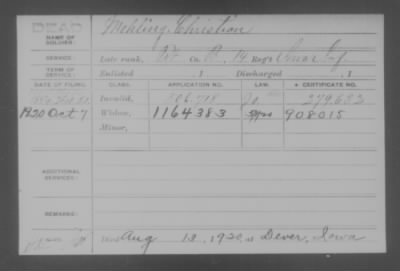 DEAD
NAME OF SOLDIER:
Mehling, Christian
SERVICE:
Late rank, Pvt Co. B, 14 Reg't Inf
TERM OF SERVICE:
Enlisted , 1 Discharged , 1
DATE OF FILING. CLASS. APPLICATION NO. LAW. * CERTIFICATE NO.
Invalid, 279.682
1920 Oct 7 Widow, 1164383 908015
Minor,
ADDITIONAL SERVICES:
REMARKS:
Died Aug 13, 1920, at Dever, Iowa